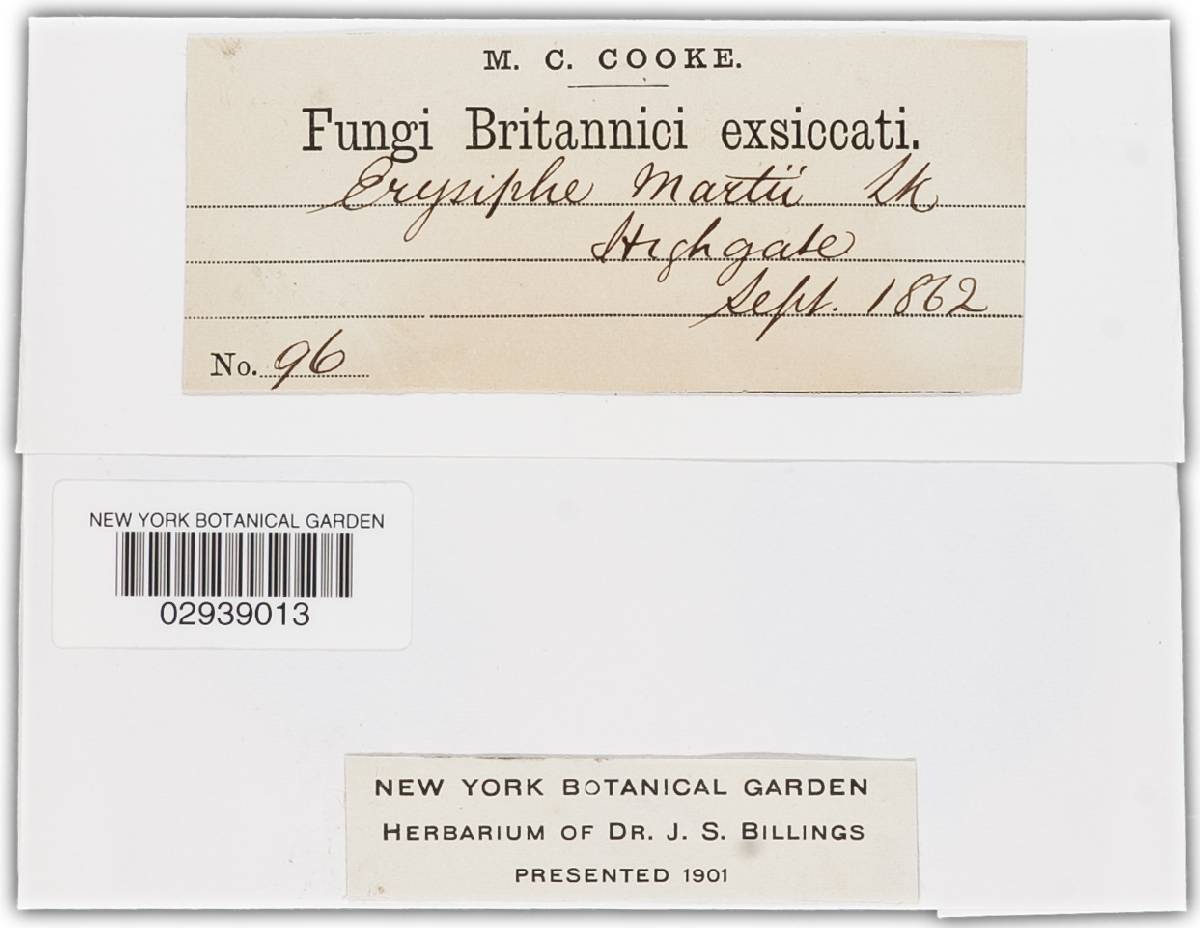 M. C. COOKE.
Fungi Britannici exsiccati.
Erysiphe Martii Lk
Highgate
Sept. 1862
No. 96
NEW YORK BOTANICAL GARDEN
02939013
NEW YORK BOTANICAL GARDEN
HERBARIUM OF DR. J. S. BILLINGS
PRESENTED 1901